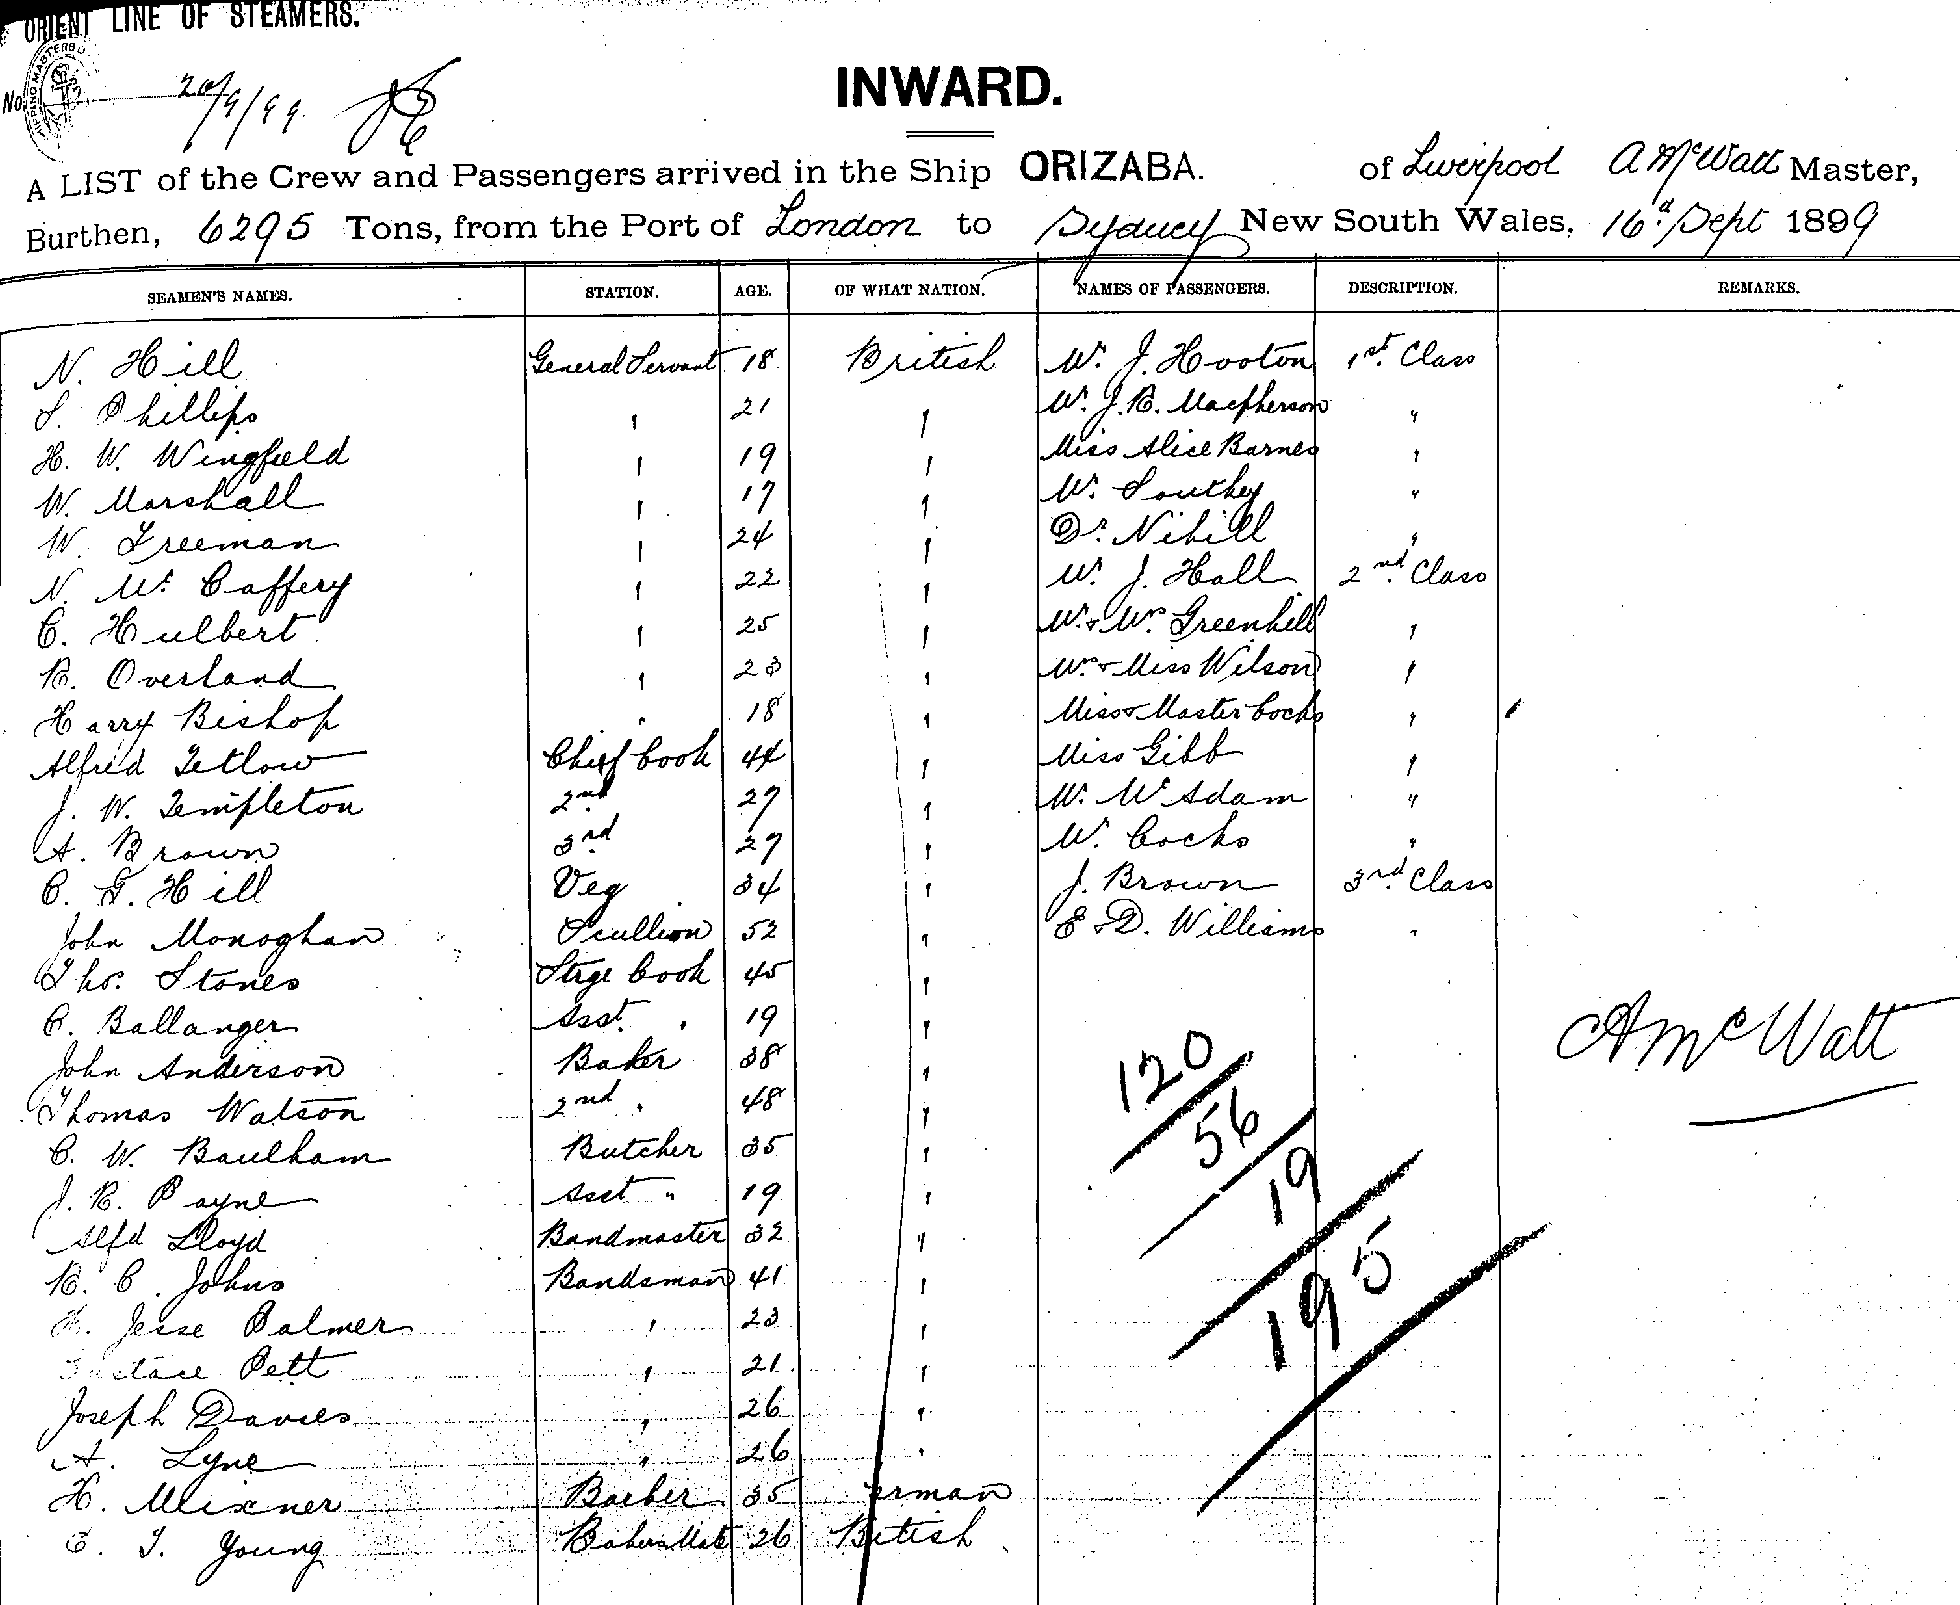 ORIENT LINE OF STEAMERS.
No. 20/9/99
INWARD.
A LIST of the Crew and Passengers arrived in the Ship ORIZABA. of Liverpool A McWatt Master,
Burthen, 6295 Tons, from the Port of London to Sydney New South Wales, 16th Sept 1899
SEAMEN'S NAMES. STATION. AGE. OF WHAT NATION. NAMES OF PASSENGERS. DESCRIPTION. REMARKS.
N. Hill General Servant 18 British Mr. J. Hooton 1st Class
S. Phillips " 21 " Mr. J. R. Macpherson "
H. W. Wingfield " 19 " Miss Alice Barnes "
W. Marshall " 17 " Mr. Southey "
W. Freeman " 24 " Dr. Nihill "
N. Mc Caffery " 22 " Mr. J. Hall 2nd Class
C. Hulbert " 25 " Mr. & Mrs. Greenhill "
R. Overland " 23 " Mrs & Miss Wilson "
Harry Bishop " 18 " Miss & Master Cocks "
Alfred Tetlow Chief Cook 44 " Miss Gibb "
J. W. Templeton 2nd 27 " Mr. McAdam "
A. Brown 3rd 27 " Mr. Cocks "
C. G. Hill Veg 34 " J. Brown 3rd Class
John Monoghan Scullion 52 " E & D. Williams "
Thos. Stones Stge Cook 45 "
C. Ballanger Asst. " 19 "
John Anderson Baker 38 "
Thomas Watson 2nd " 48 "
C. W. Baulham Butcher 35 "
J. R. Payne Asst " 19 "
Alfd Lloyd Bandmaster 32 "
R. C. Johns Bandsman 41 "
H. Jesse Palmer " 23 "
Pett " 21 "
Joseph Davies " 26 "
A. Lyne " 26 "
H. Meixner Barber 35 erman
T. Young Bakers Mate 26 British
120
56
19
195
A McWatt